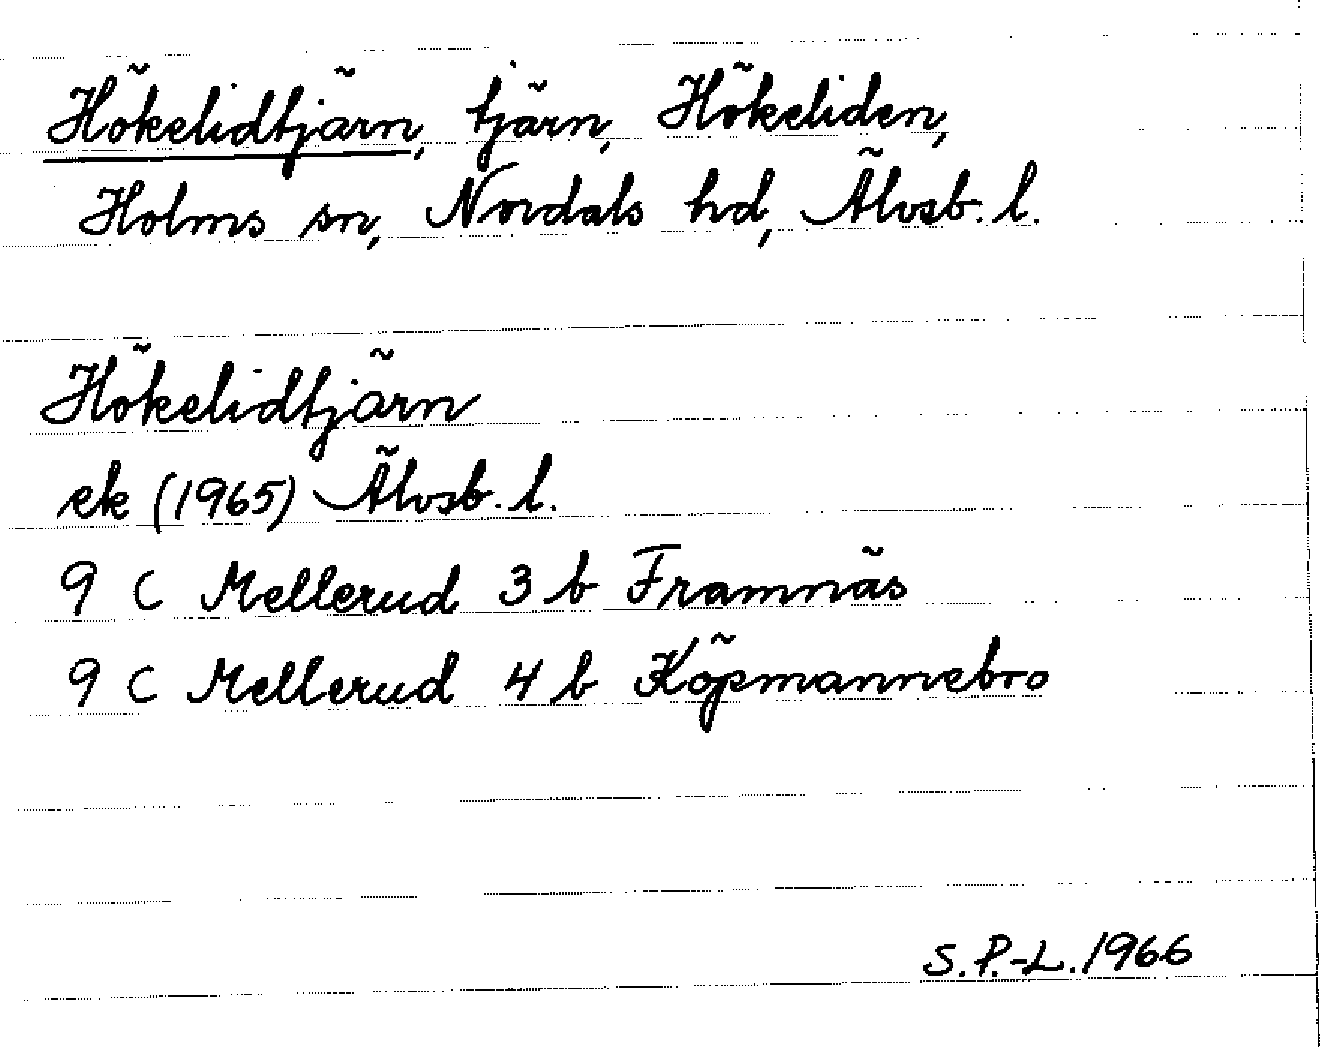 Hökelidtjärn, tjärn, Hökeliden,
Holms sn, Nordals hd, Älvsb. l.
Hökelidtjärn
ek (1965) Älvsb. l.
9 C Mellerud 3 b Framnäs
9 C Mellerud 4 b Köpmannebro
S.P.-L. 1966